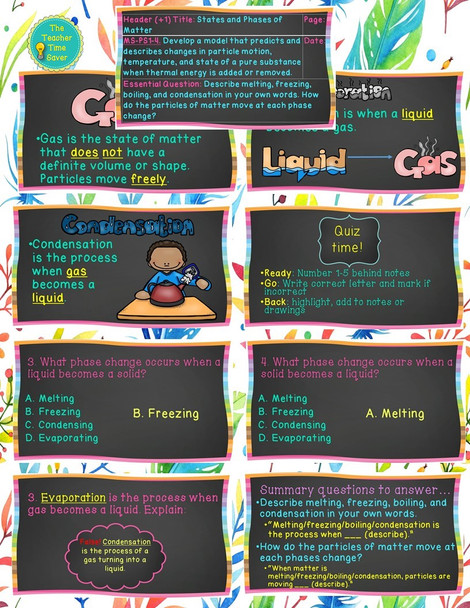 The
Teacher
Time
Saver
Header (+1) Title: States and Phases of Matter
Page:
MS-PS1-4: Develop a model that predicts and describes changes in particle motion, temperature, and state of a pure substance when thermal energy is added or removed.
Date
Essential Question: Describe melting, freezing, boiling, and condensation in your own words. How do the particles of matter move at each phase change?
•Gas is the state of matter
that does not have a
definite volume or shape.
Particles move freely.
oration
n is when a liquid
becomes a gas.
Liquid
Gas
Condensation
•Condensation
is the process
when gas
becomes a
liquid.
Quiz
time!
•Ready: Number 1-5 behind notes
•Go: Write correct letter and mark if
incorrect
•Back: highlight, add to notes or
drawings
3. What phase change occurs when a
liquid becomes a solid?
A. Melting
B. Freezing
C. Condensing
D. Evaporating
B. Freezing
4. What phase change occurs when a
solid becomes a liquid?
A. Melting
B. Freezing
C. Condensing
D. Evaporating
A. Melting
3. Evaporation is the process when
gas becomes a liquid. Explain:
False: Condensation
is the process of a
gas turning into a
liquid.
Summary questions to answer...
•Describe melting, freezing, boiling, and
condensation in your own words.
•"Melting/freezing/boiling/condensation is
the process when ___ (describe)."
•How do the particles of matter move at
each phases change?
•"When matter is
melting/freezing/boiling/condensation, particles are
moving ___ (describe)."